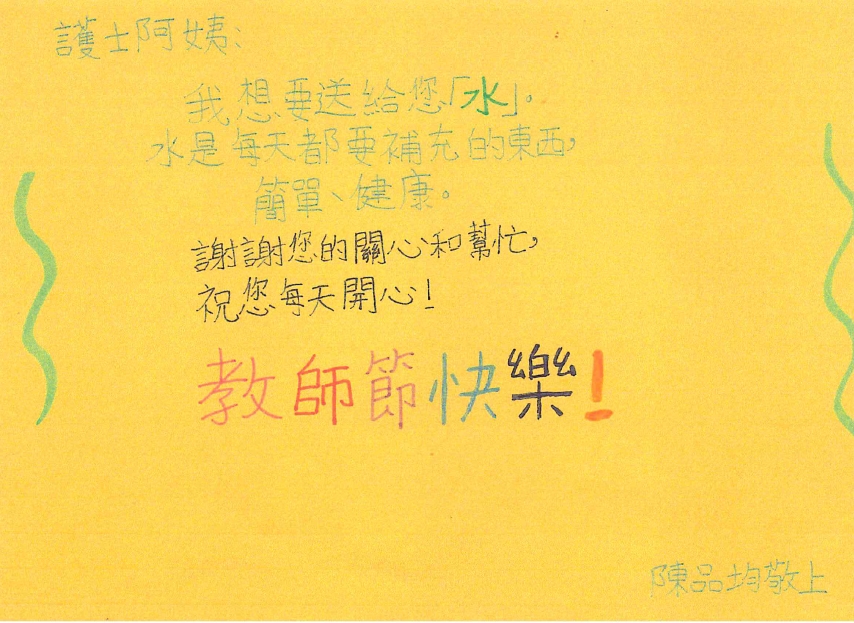 護士阿姨:
我想要送給您「水」。
水是每天都要補充的東西,
簡單、健康。
謝謝您的關心和幫忙,
祝您每天開心!
教師節快樂!
陳品均敬上